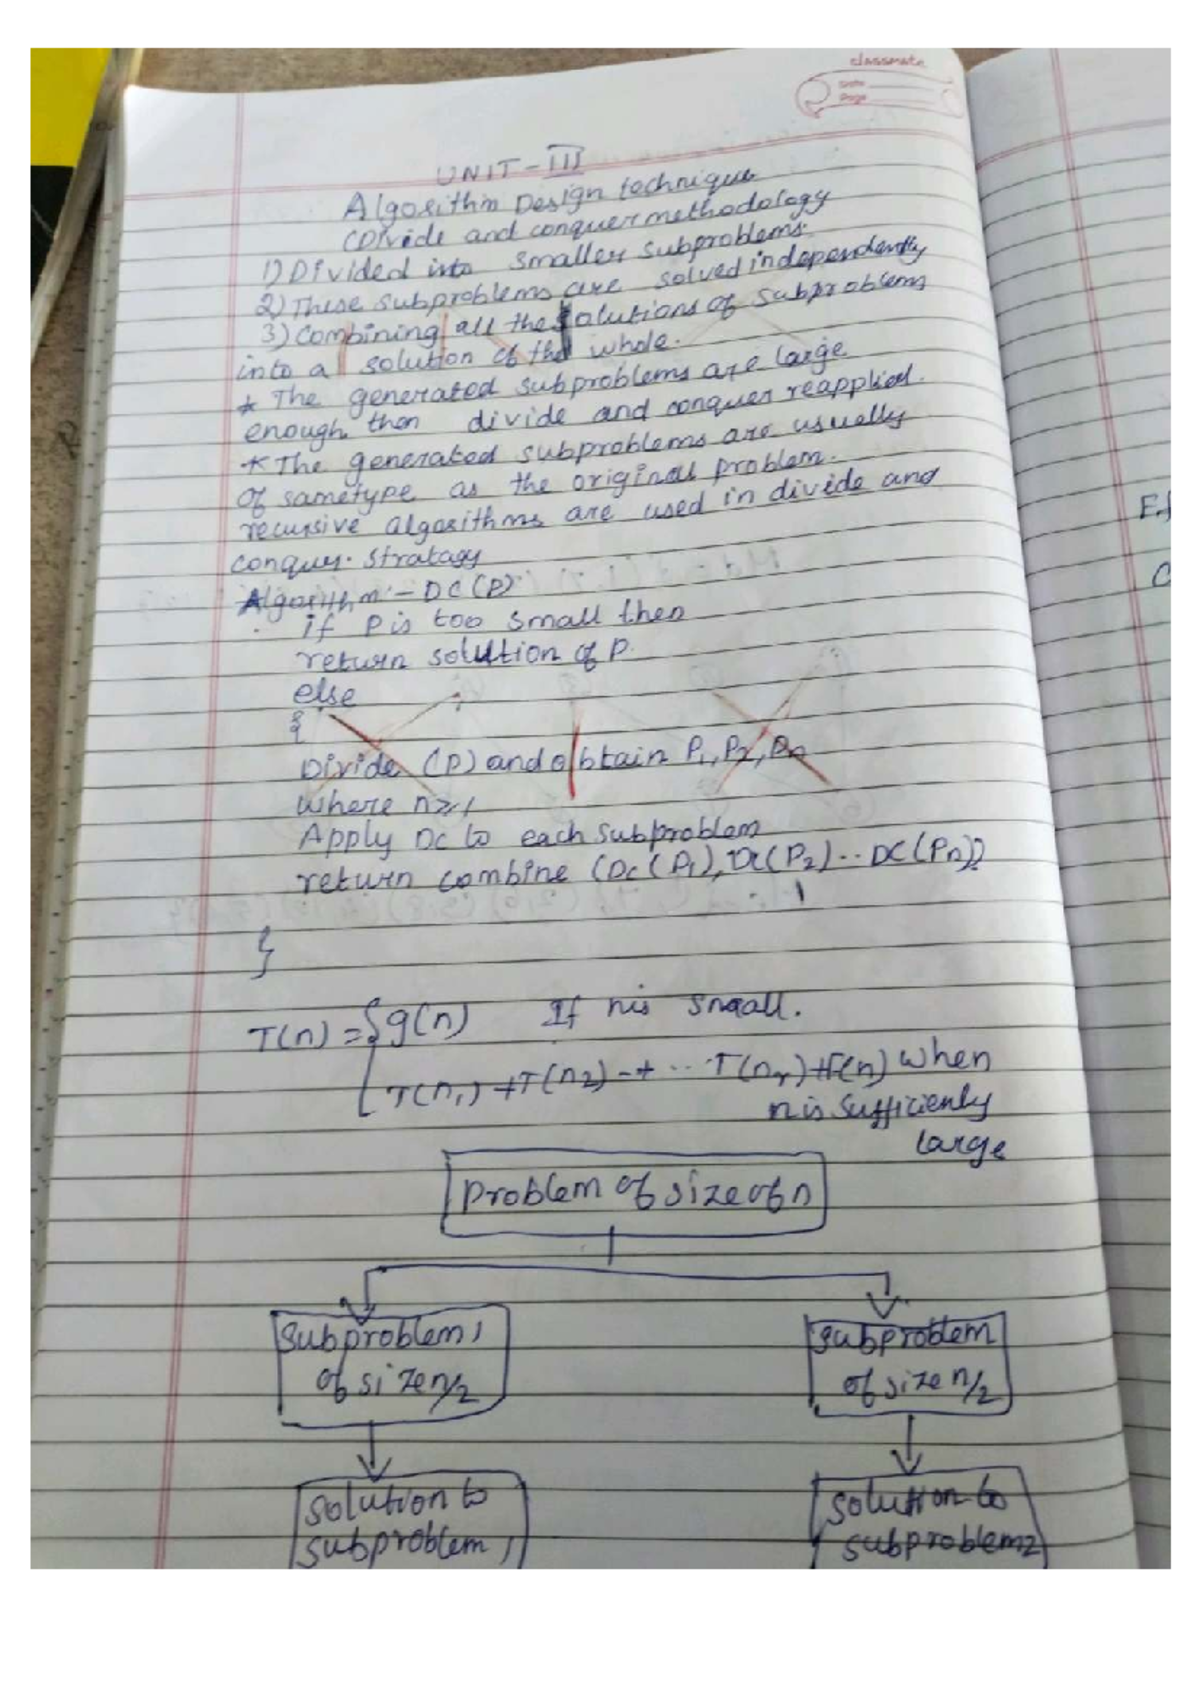 classmate
Date
Page
UNIT-III
Algorithm Design technique
(Divide and conquer methodology
1) Divided into smaller subproblems.
2) These subproblems are solved independently
3) combining all the solutions of subproblems
into a solution of the whole.
* The generated subproblems are large
enough then divide and conquer reapplied.
* The generated subproblems are usually
of sametype as the original problem.
recursive algorithms are used in divide and
conquer. stratagy
Algorithm:- DC(P)
if P is too small then
return solution of P.
else
{
Divide (P) and obtain P1, P2, Pn
where n≥1
Apply DC to each subproblem
return combine (DC(P1), DC(P2)..DC(Pn));
}
T(n) = { g(n) If n is small.
T(n1) + T(n2) - + ... T(nr) + F(n) when
n is sufficienly
large
problem of size of n
subproblem1 subproblem
of size n/2 of size n/2
solution to solution to
subproblem1 subproblem2
E.f
C